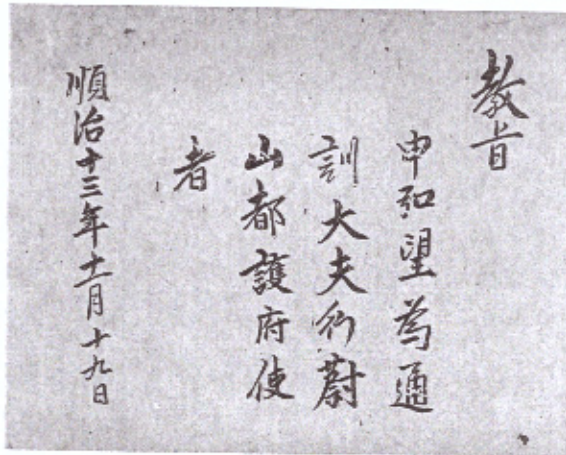 教旨
申和望為通
訓大夫行蔚
山都護府使
者
順治十三年十二月十九日